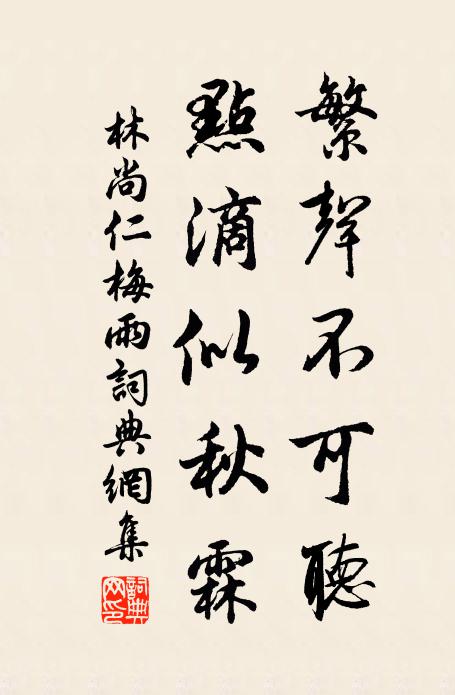 繁聲不可聽
點滴似秋霖
林尚仁梅雨詞典網集
詞典網印